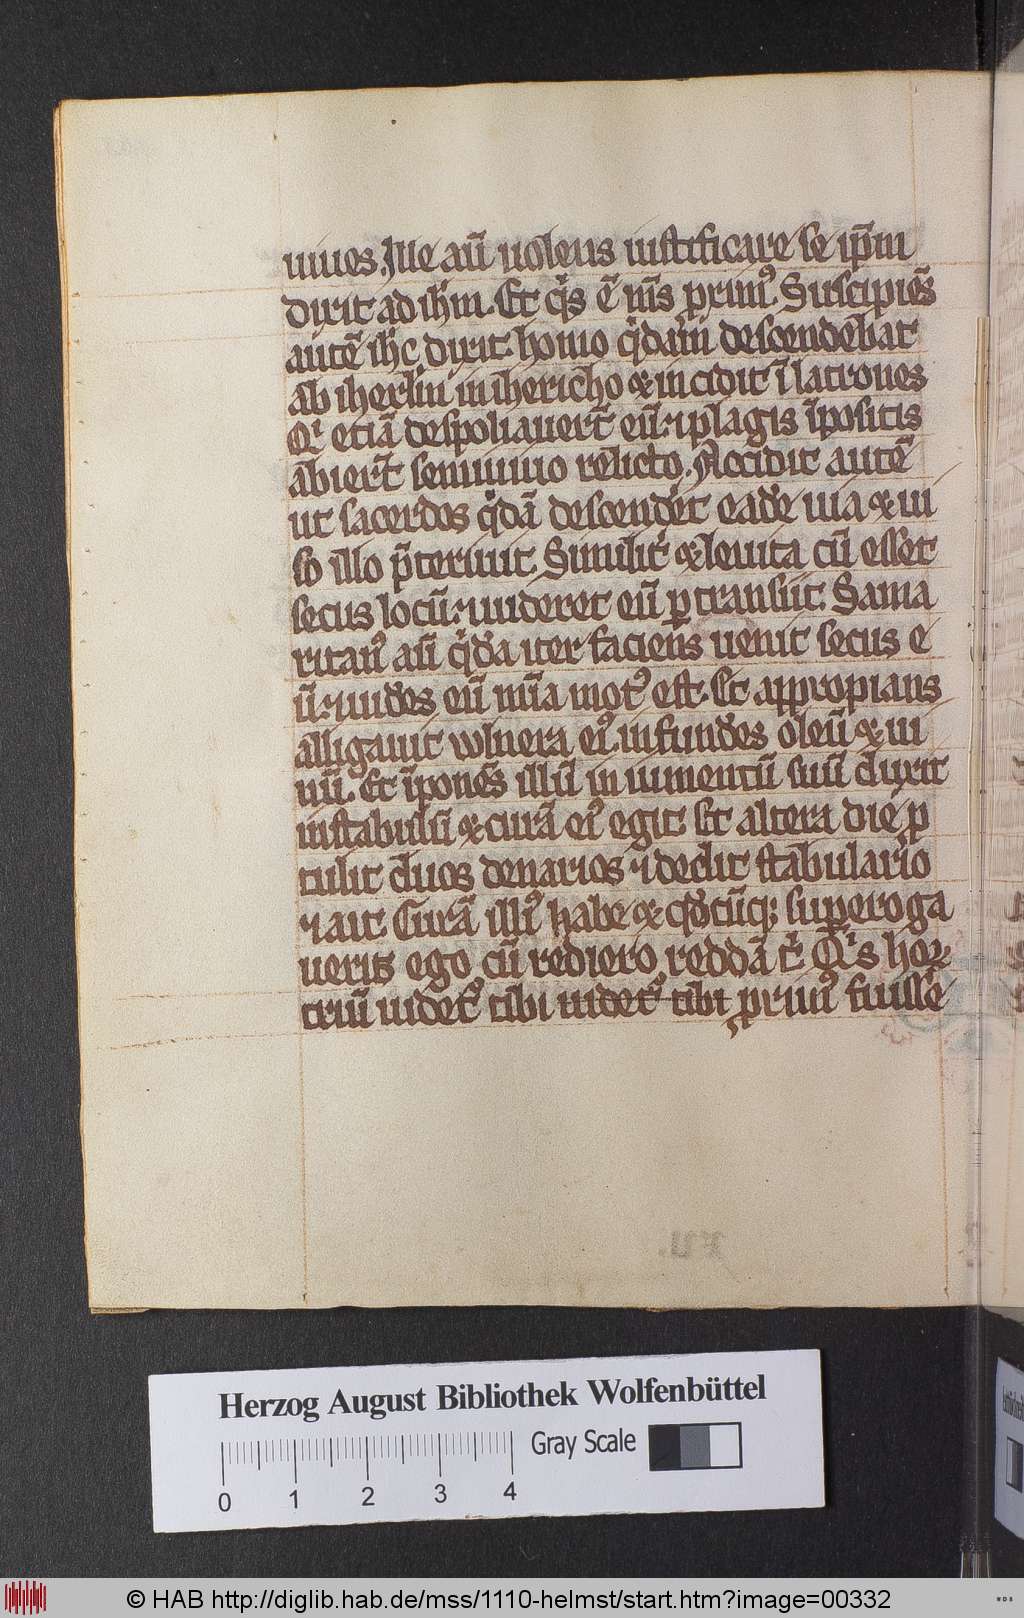 uiues. Ille aū uolens iustificare se ip̄m
dixit ad ih̄m. Et q̇s ē m̄s p̱rimꝰ. Suscipiēs
autē ih̄c dixit. homo q̇dam̄ descendēbat
ab iherl̄m in ihericho ⁊ incidit ī latrones
Qⁱ etiā despoliauerт̄ eū. ⁊ plagis īpositis
abierт̄ semiuiuo relicto. Accidit autē
ut sacerdos q̇dā descenderet eadē uia ⁊ ui
so illo p̄teriuit. Similit̾ ⁊ leuita cū esset
secus locū. ⁊ uideret eū ꝑtransiit. Sama
ritanꝰ aū q̇da iter faciens uenit secus e
ū. ⁊ uidēs eū mīa motꝰ est. Et appropians
alligauit wlnera eiꝰ. infundēs oleū ⁊ ui
nū. Et īponēs illū in iumentū suū duxit
instabulū ⁊ curā eiꝰ egit. ⁊t altera die ꝓ
tulit duos denarios ⁊ dedit stabulario
⁊ ait. Curā illiꝰ habe ⁊ qd̾cūq; superoga
ueris ego cū rediero reddā t̾. Qⁱs hoꝝ
triū uidetꝰ tibi uidetꝰ tibi p̱rimꝰ fuisse
xv.
Herzog August Bibliothek Wolfenbüttel
Gray Scale
0 1 2 3 4
© HAB http://diglib.hab.de/mss/1110-helmst/start.htm?image=00332